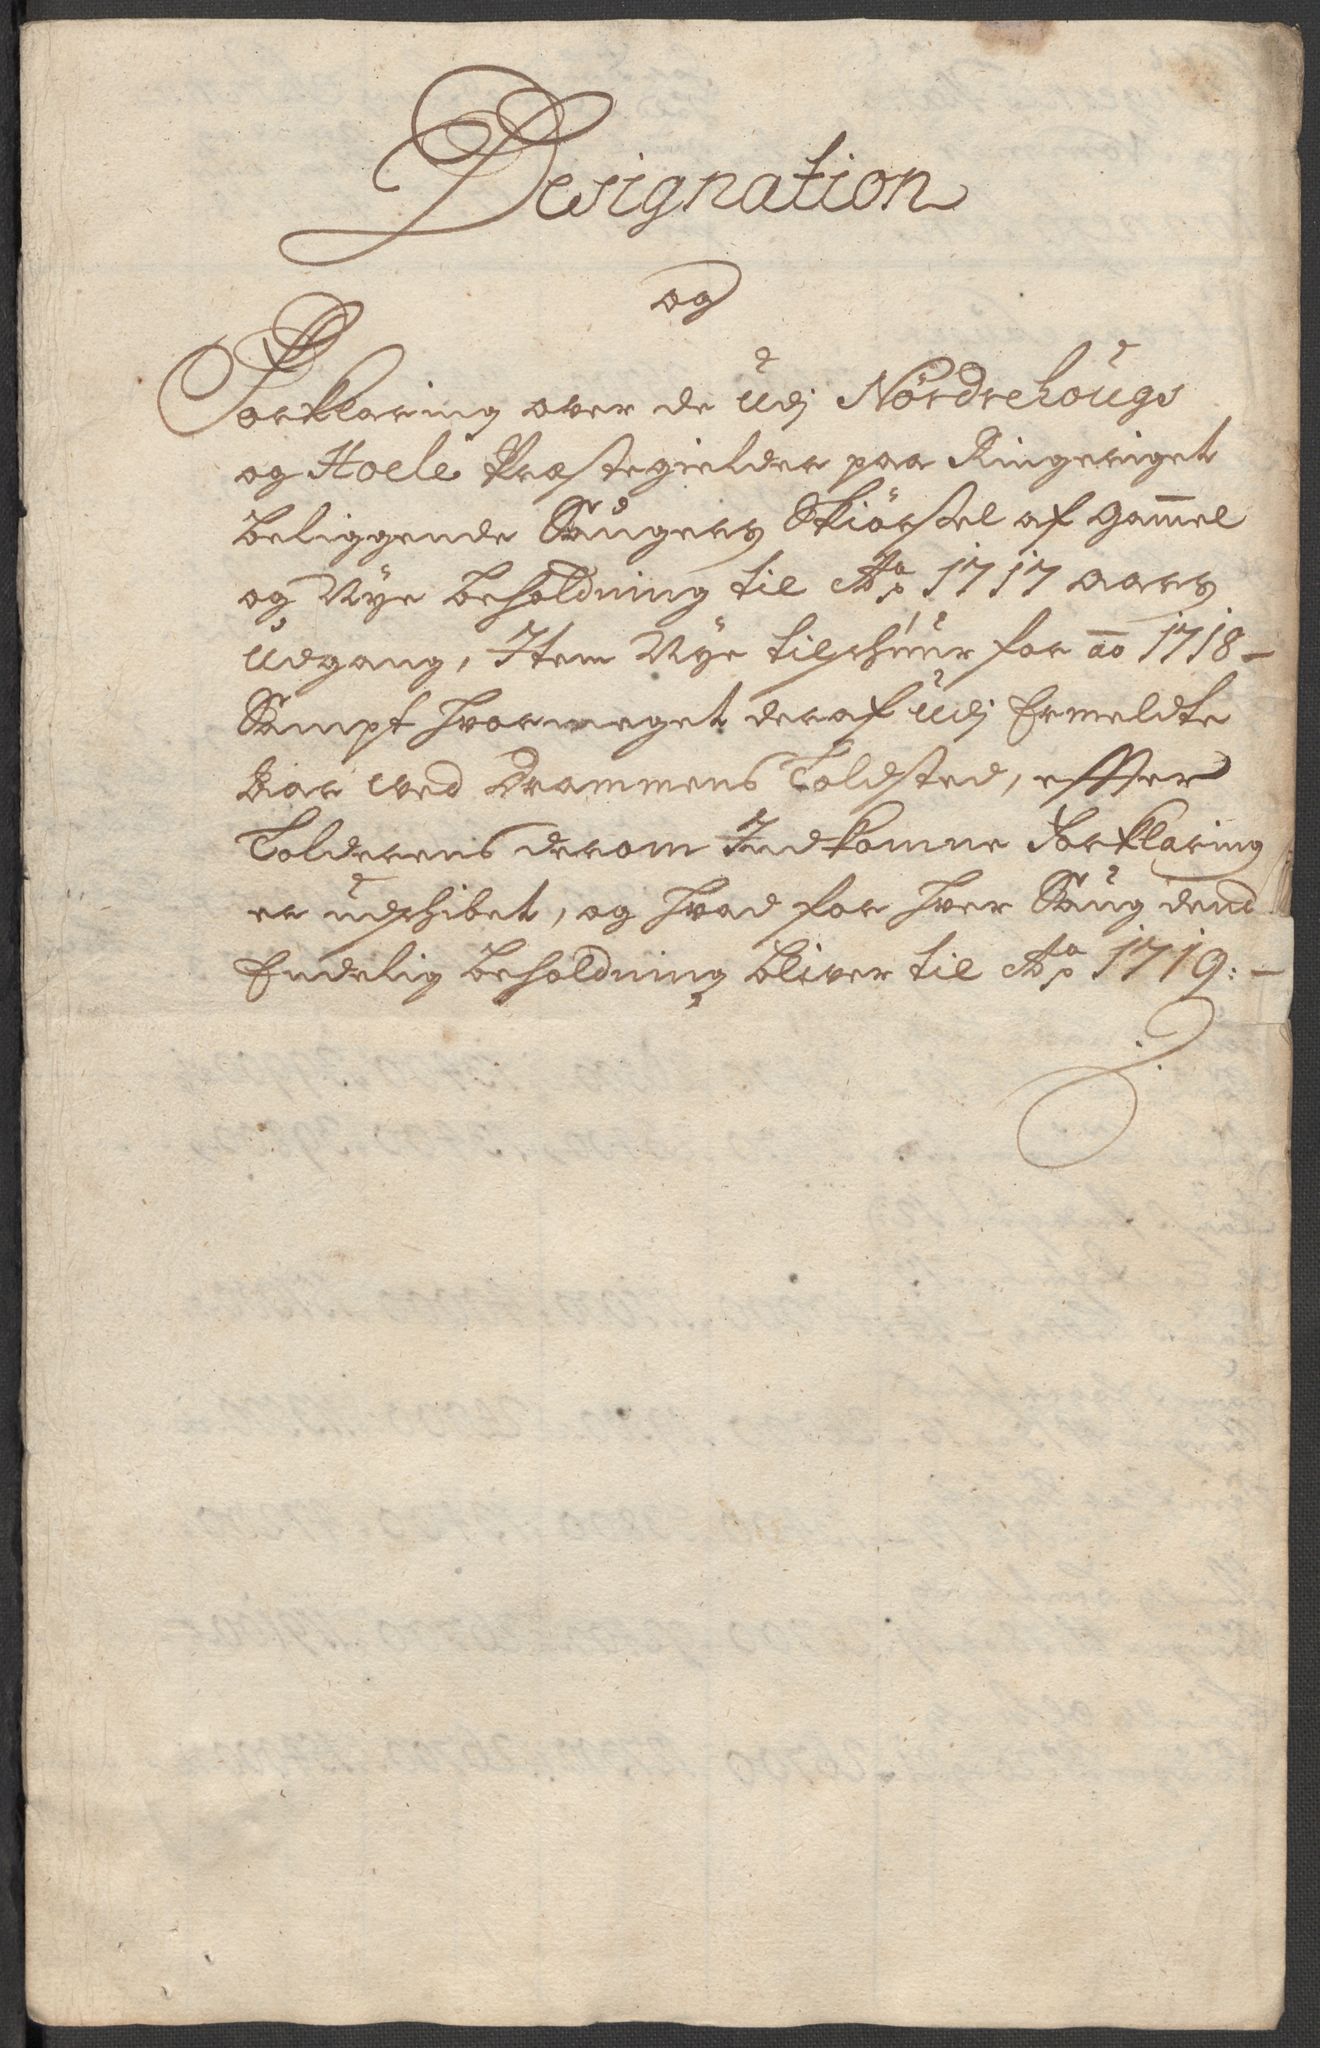 Designation
og
Forklaring over de Udj Nordrehougs
og Hoele Præstegielder paa Ringeriget
beliggende Saugers Skiørsel af gam̅el
og Nye beholdning til Ao 1717 aars
Udgang, Item Nye tilschúúr for a̅o̅ 1718 –
Sampt hvormeget deraf Udj Ermeldte
Aar wed Drammens Toldsted, effter
Tolderens derom Indkomne Forklaring
er udschibet, og hvad for hver Saug dend
Endelig beholdning bliver til Ao 1719: –